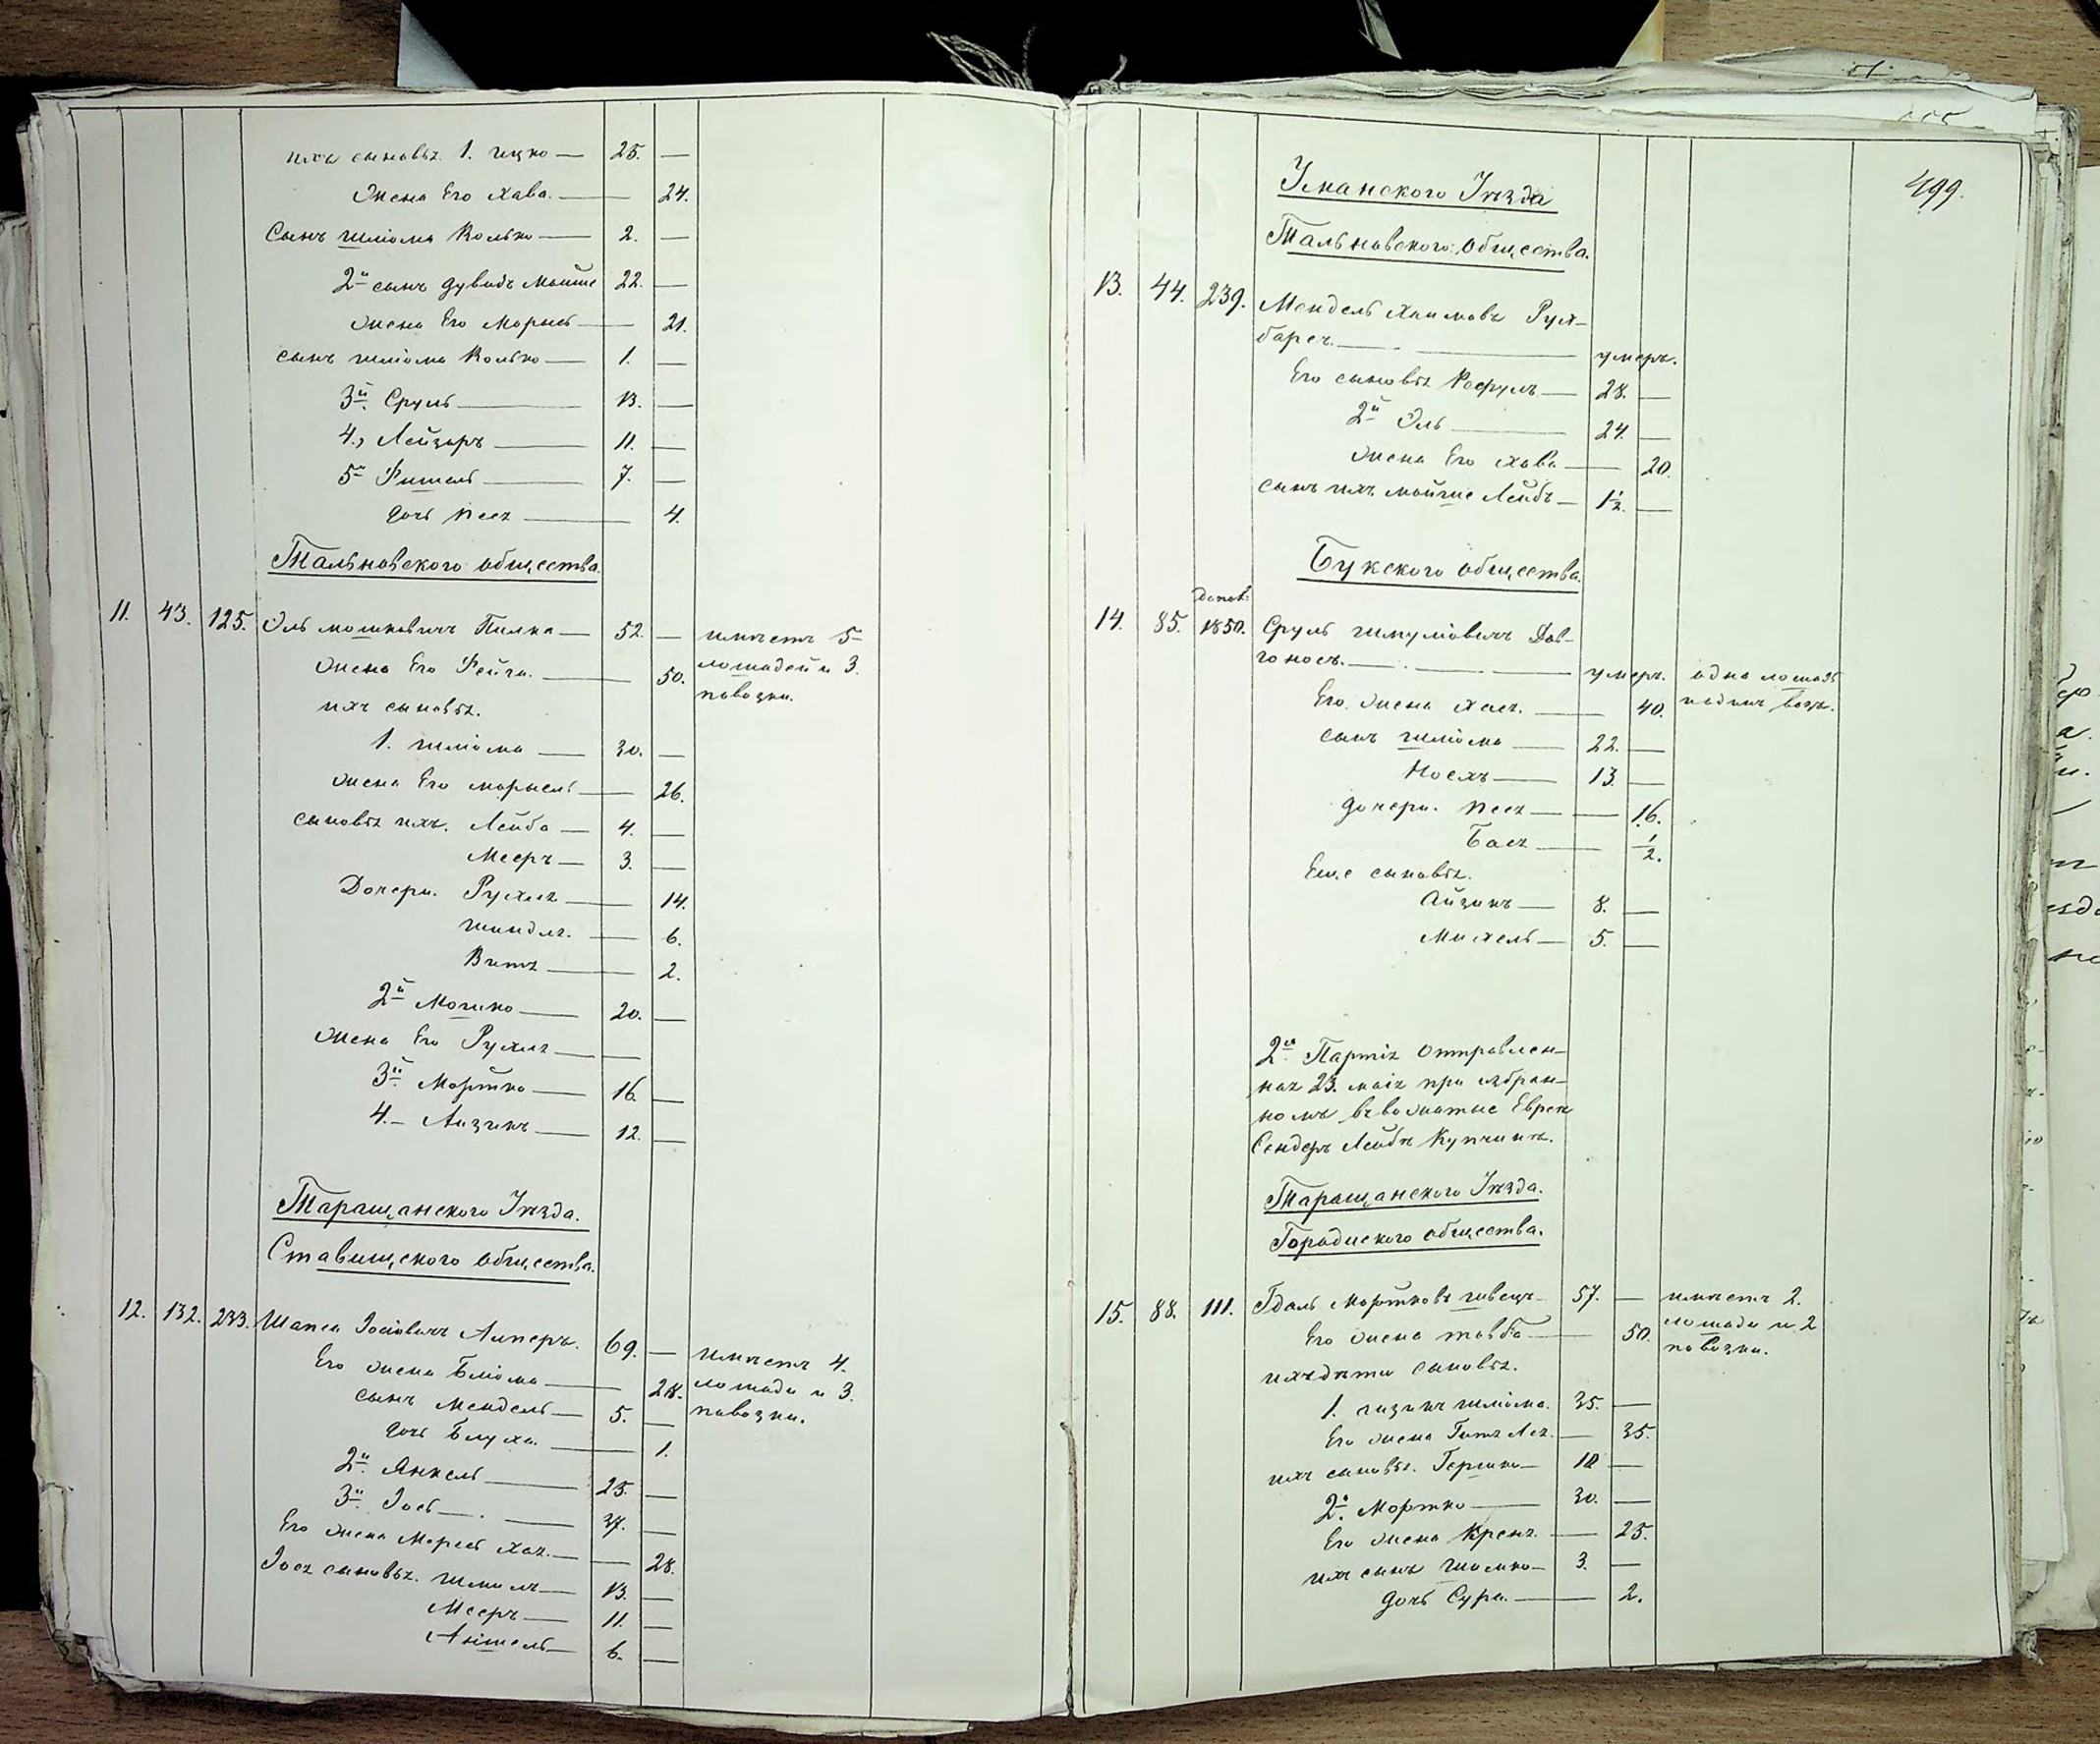 ихъ сыновья. 1. ицко — 25. —
Жена Его Хава. — 24.
Сынъ шліома Колько — 2. —
2й сынъ дувидъ Мошко 22. —
жена Его Марьясь — 21.
сынъ шліома Колько — 1. —
3й Сруль — 13. —
4., Лейзоръ — 11. —
5й Фишель — 7. —
дочь Песя — 4.
Тальновского общества.
11. 43. 125. Эль мошковичъ Пилка — 52. — имѣетъ 5
жена Его Фейга. — 50. лошадей и 3.
ихъ сыновья. повозки.
1. шліома — 30. —
жена Его марьясь — 26.
сыновья ихъ. Лейба — 4. —
Мееръ — 3. —
Дочери. Рухля — 14.
шиндля. — 6.
Витя — 2.
2й Мошко — 20. —
жена Его Рухля —
3й Мортко — 16. —
4.– Аизикъ — 12. —
Таращанского Уѣзда.
Ставищского общества.
12. 132. 233. Шапса Іосіовичъ Алперъ. 69. — имѣетъ 4.
Его жена Бліома — 28. лошади и 3.
сынъ Мендель — 5. — повозки.
дочь Блуха. — 1.
2й Янкель — 25. —
3й Іось — 37. —
Его жена Марья Хая. — 28.
Іося сыновья. шмиль — 13. —
Мееръ — 11. —
Аншель — 6. —
499.
Уманского Уѣзда
Тальновского общества.
13. 44. 239. Мендель Хаимовъ Рух-
барсч. — умеръ.
Его сыновья Рефулъ — 28. —
2й Эль — 24. —
жена Его Хава — 20.
сынъ ихъ мойше Лейбъ — 1½. —
Букского общества.
14. 85. 1850. Сруль шмуліовичъ Дов-
гоносъ. — умеръ. одна лошадь
Его жена Хася. — 40. и одинъ возъ.
сынъ шліома — 22. —
Носхъ — 13. —
дочери. Песя — 16.
Бася — ½.
Еще сыновья.
Айзикъ — 8. —
Михель — 5. —
2я Партія отправлен-
ная 23. маія при избран-
номъ въ вожатые Евреи
Сендеръ Лейбѣ Купчикъ.
Таращанского Уѣзда.
Городиского общества.
15. 88. 111. Гдаль Мортковъ швецъ — 57. — имѣетъ 2.
Его жена товба — 50. лошади и 2
ихъ дѣти сыновья. повозки.
1. аизикъ шліома. 35. —
Его жена Гитя Лея. — 35.
ихъ сыновья. Гершко — 10 —
2й Мортко — 30. —
Его жена Креня. — 25.
ихъ сынъ Шомко — 3. —
дочь Сура. — 2.